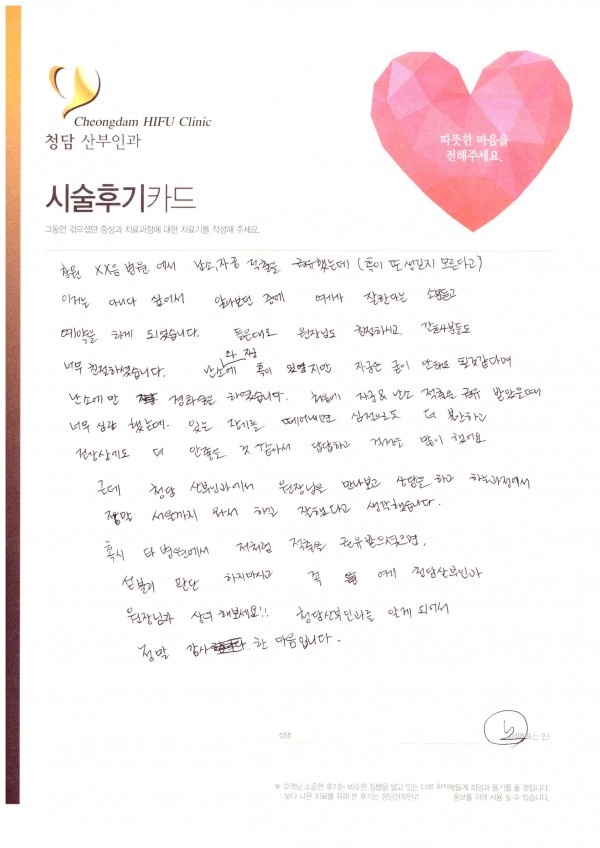 Cheongdam HIFU Clinic
청담 산부인과
따뜻한 마음을
전해주세요.
시술후기카드
그동안 겪으셨던 증상과 치료과정에 대한 치료기를 작성해 주세요.
창원 XX음 병원 에서 난소,자궁 적출을 권유했는데 (혹이 또 생길지 모른다고)
이거는 아니다 싶어서 알아보던 중에 여기가 잘한다는 소문듣고
예약을 하게 되었습니다. 들은대로 원장님도 친절하시고, 간호사분들도
너무 친절하셨습니다. 난소에 와 자궁 혹이 있었지만 자궁은 굳이 안해도 될것같다며
난소에만 경화술을 하였습니다. 처음에 자궁&난소 적출을 권유 받았을때
너무 심란 했는데. 있는 장기를 떼어내면 심적으로도 더 불안하고
정상생활에도 더 안좋을 것 같아서 답답하고 걱정을 많이 했어요
근데 청담 산부인과에서 원장님을 만나보고 상담을 하고 하는과정에서
정말 서울까지 와서 하길 잘했다고 생각했습니다.
혹시 타병원에서 저처럼 적출을 권유받으셨으면,
섣불리 판단 하지마시고 꼭 에게 청담산부인과
원장님과 상의 해보세요!! 청담산부인과를 알게 되어서
정말 감사 한 마음입니다.
성명
※ 고객님 소중한 후기는 비슷한 질병을 앓고 있는 다른 환자분들께 희망과 용기를 줄 것입니다.
보다 나은 치료를 위해 본 후기는 청담산부인과 홍보를 위해 사용 될 수 있습니다.